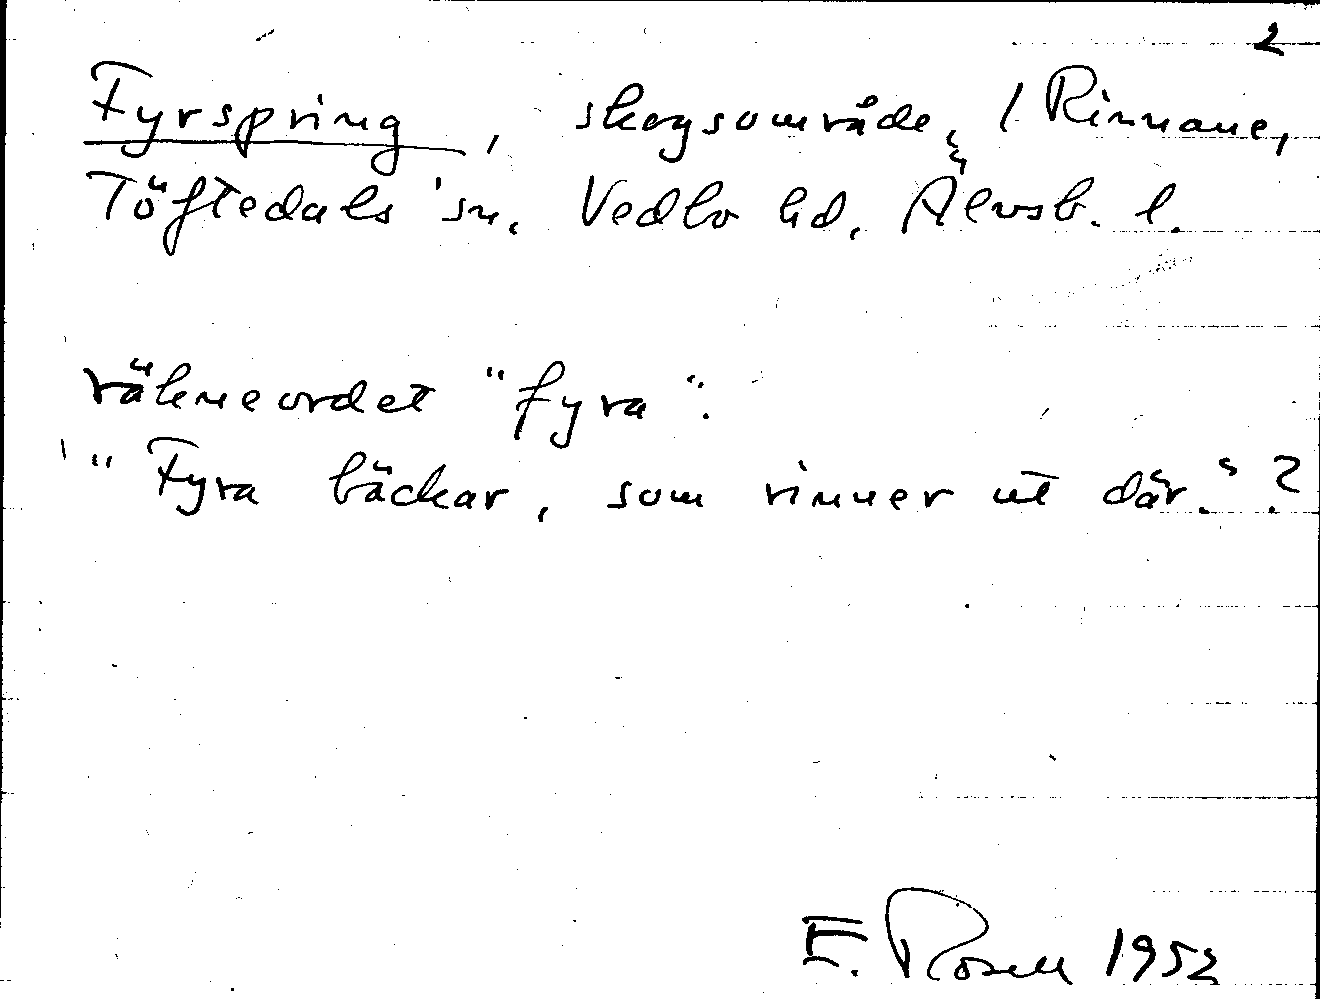 2
Fyrspring, skogsområde, / Rinnane,
Töftedals sn. Vedbo hd, Älvsb. l.
räkneordet "fyra".
"Fyra bäckar, som rinner ut där." ?
E. Rosell 1952